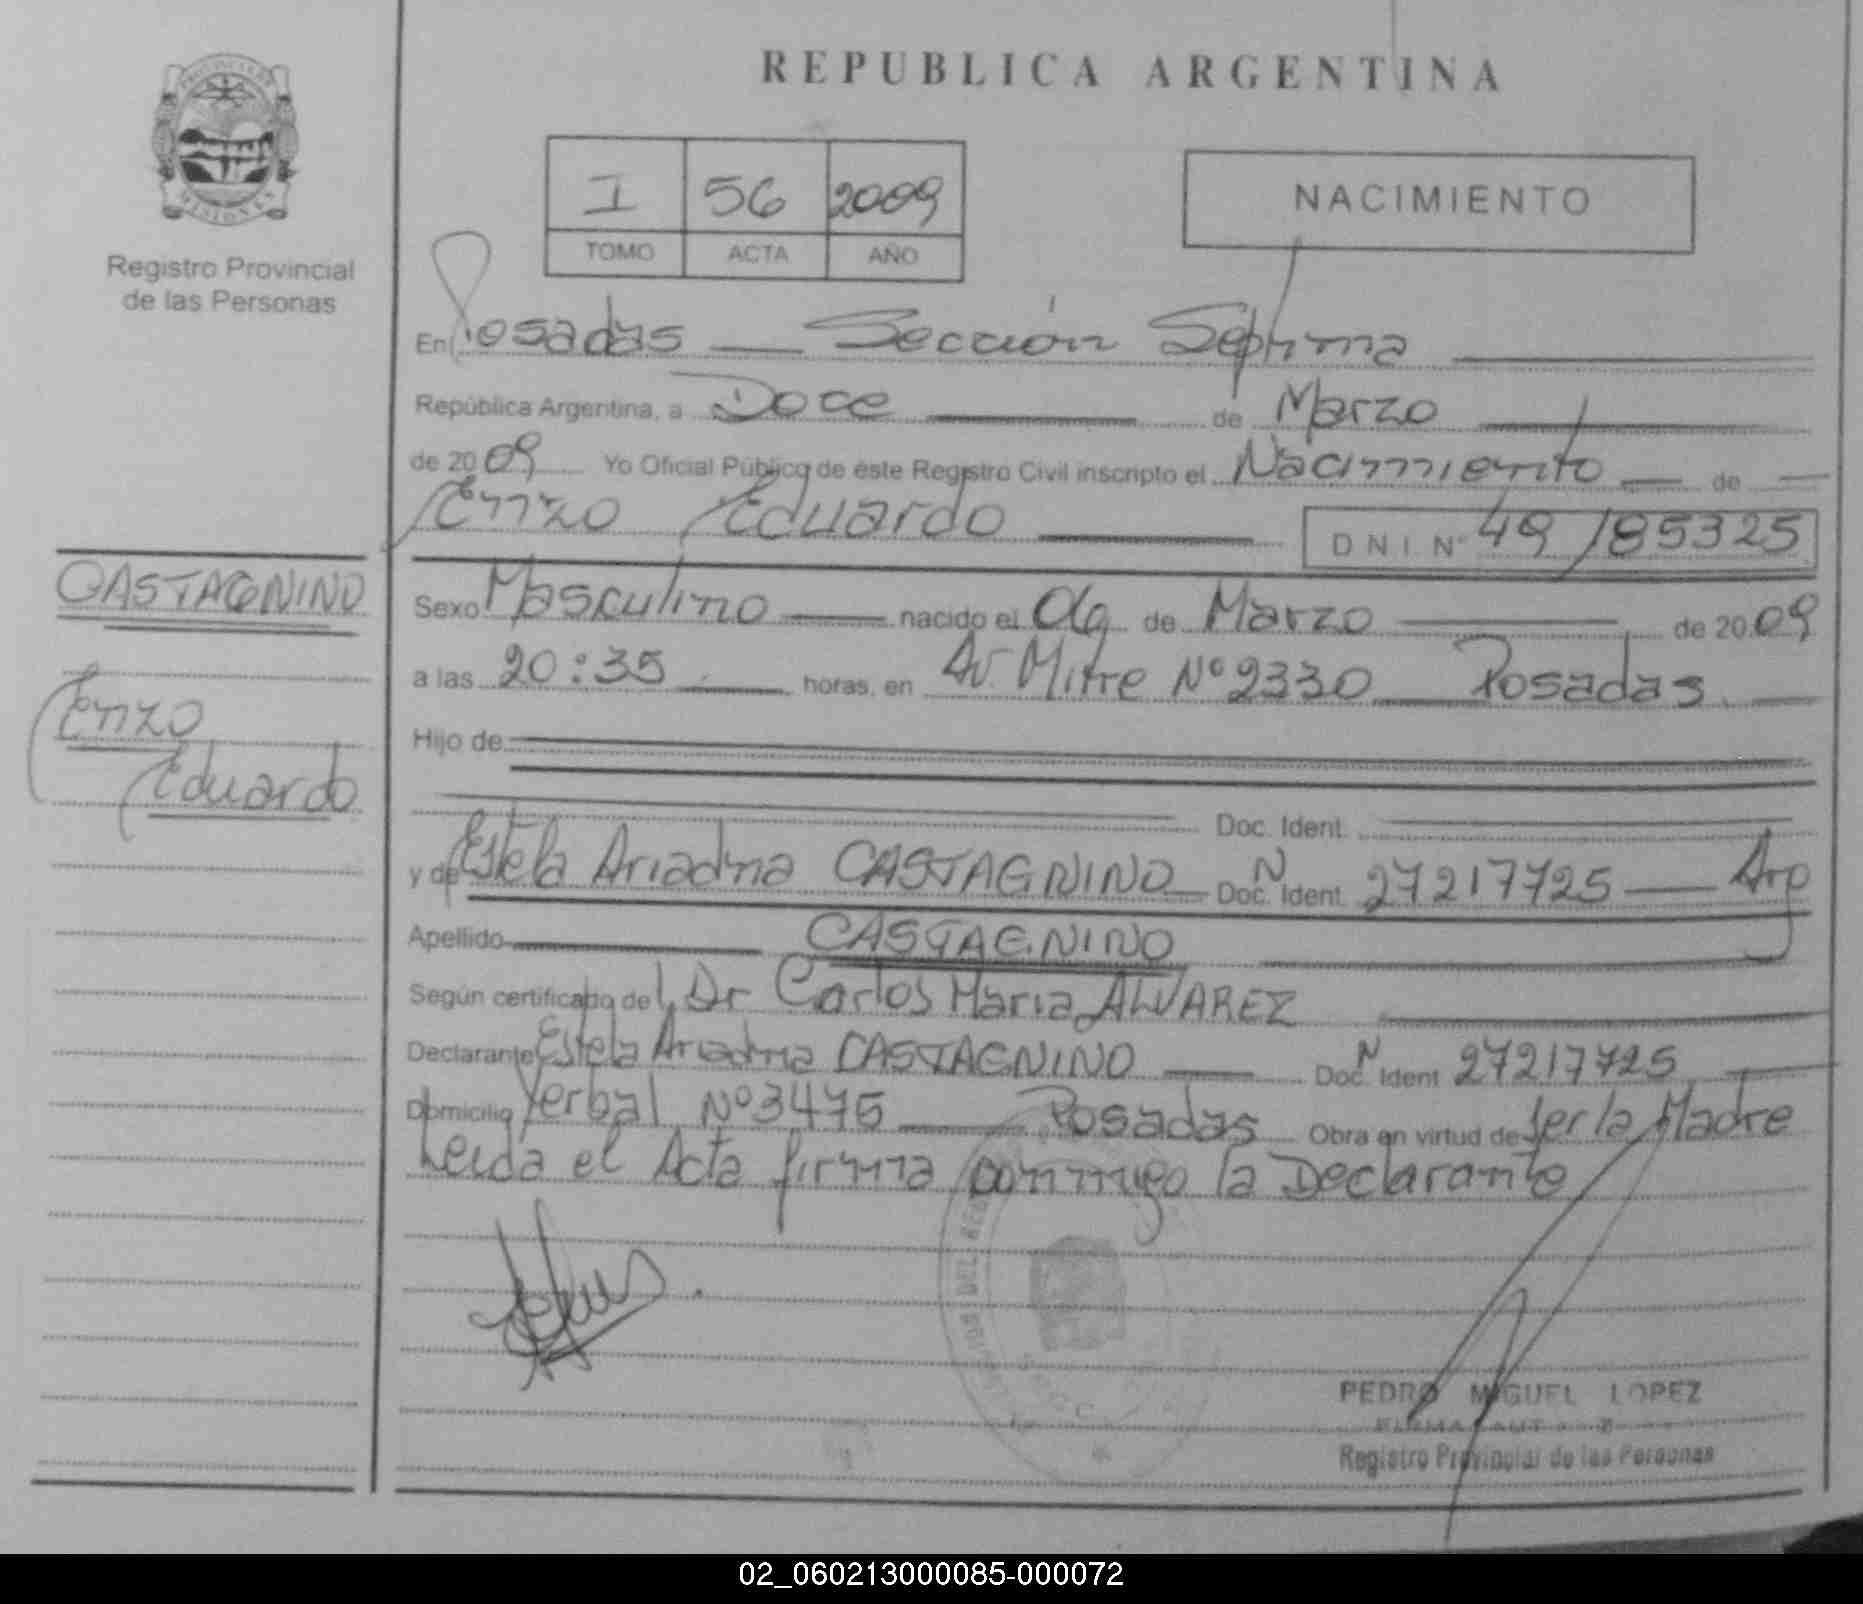 PROVINCIA DE
MISIONES
Registro Provincial
de las Personas
REPUBLICA ARGENTINA
I 56 2009
TOMO ACTA AÑO
NACIMIENTO
En Posadas — Sección Séptima
República Argentina, a Doce de Marzo
de 2009 Yo Oficial Público de éste Registro Civil inscripto el Nacimiento — de —
Enzo Eduardo DNI Nº 49/85325
CASTAGNINO
Enzo
Eduardo
Sexo Masculino — nacido el 06 de Marzo — de 2009
a las 20:35 — horas, en Av. Mitre Nº 2330 — Posadas
Hijo de
Doc. Ident.
y de Estela Ariadna CASTAGNINO — Doc. N Ident. 27217725 — Arg
Apellido — CASTAGNINO
Según certificado del Dr Carlos Maria ALVAREZ
Declarante Estela Ariadna CASTAGNINO — Doc. N Ident 27217725
Domicilio Yerbal Nº 3475 — Posadas Obra en virtud de ser la Madre
Leida el Acta firma conmigo la Declarante
PEDRO MIGUEL LOPEZ
Registro Provincial de las Personas
02_060213000085-000072